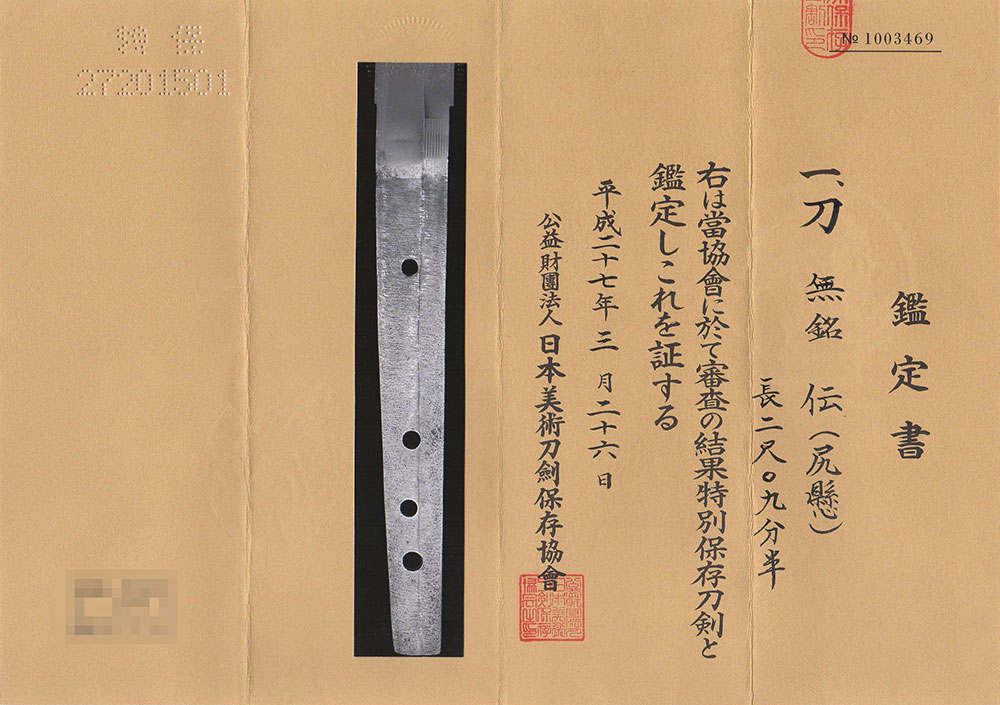 № 1003469
鑑定書
一、刀 無銘 伝(尻懸)
長二尺０九分半
右は當協會に於て審査の結果特別保存刀剣と
鑑定しこれを証する
平成二十七年三月二十六日
公益財團法人日本美術刀劍保存協會
特保
27201501